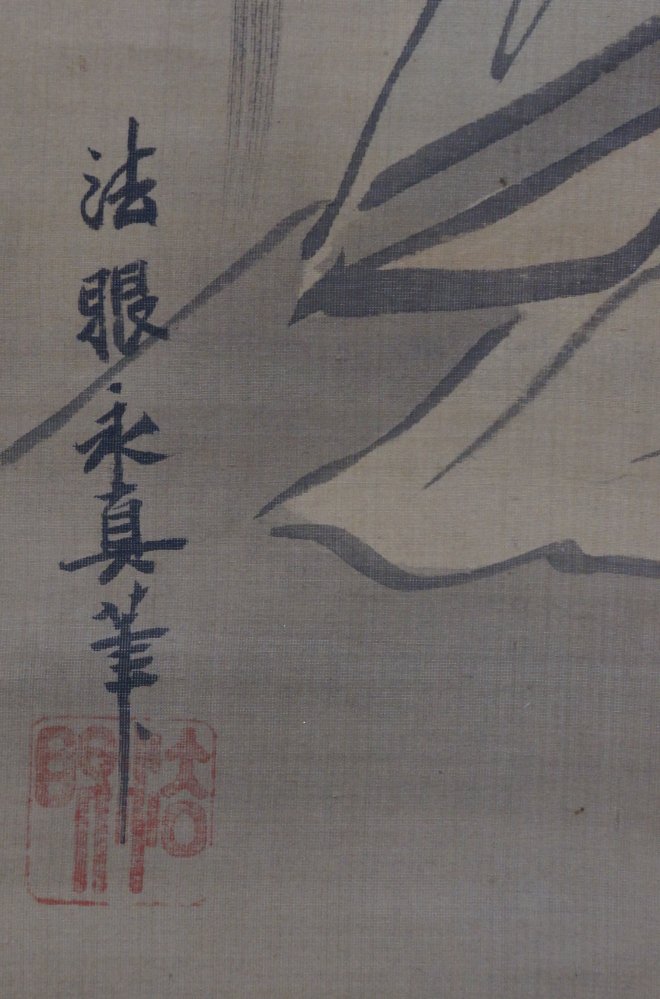 法眼永真筆